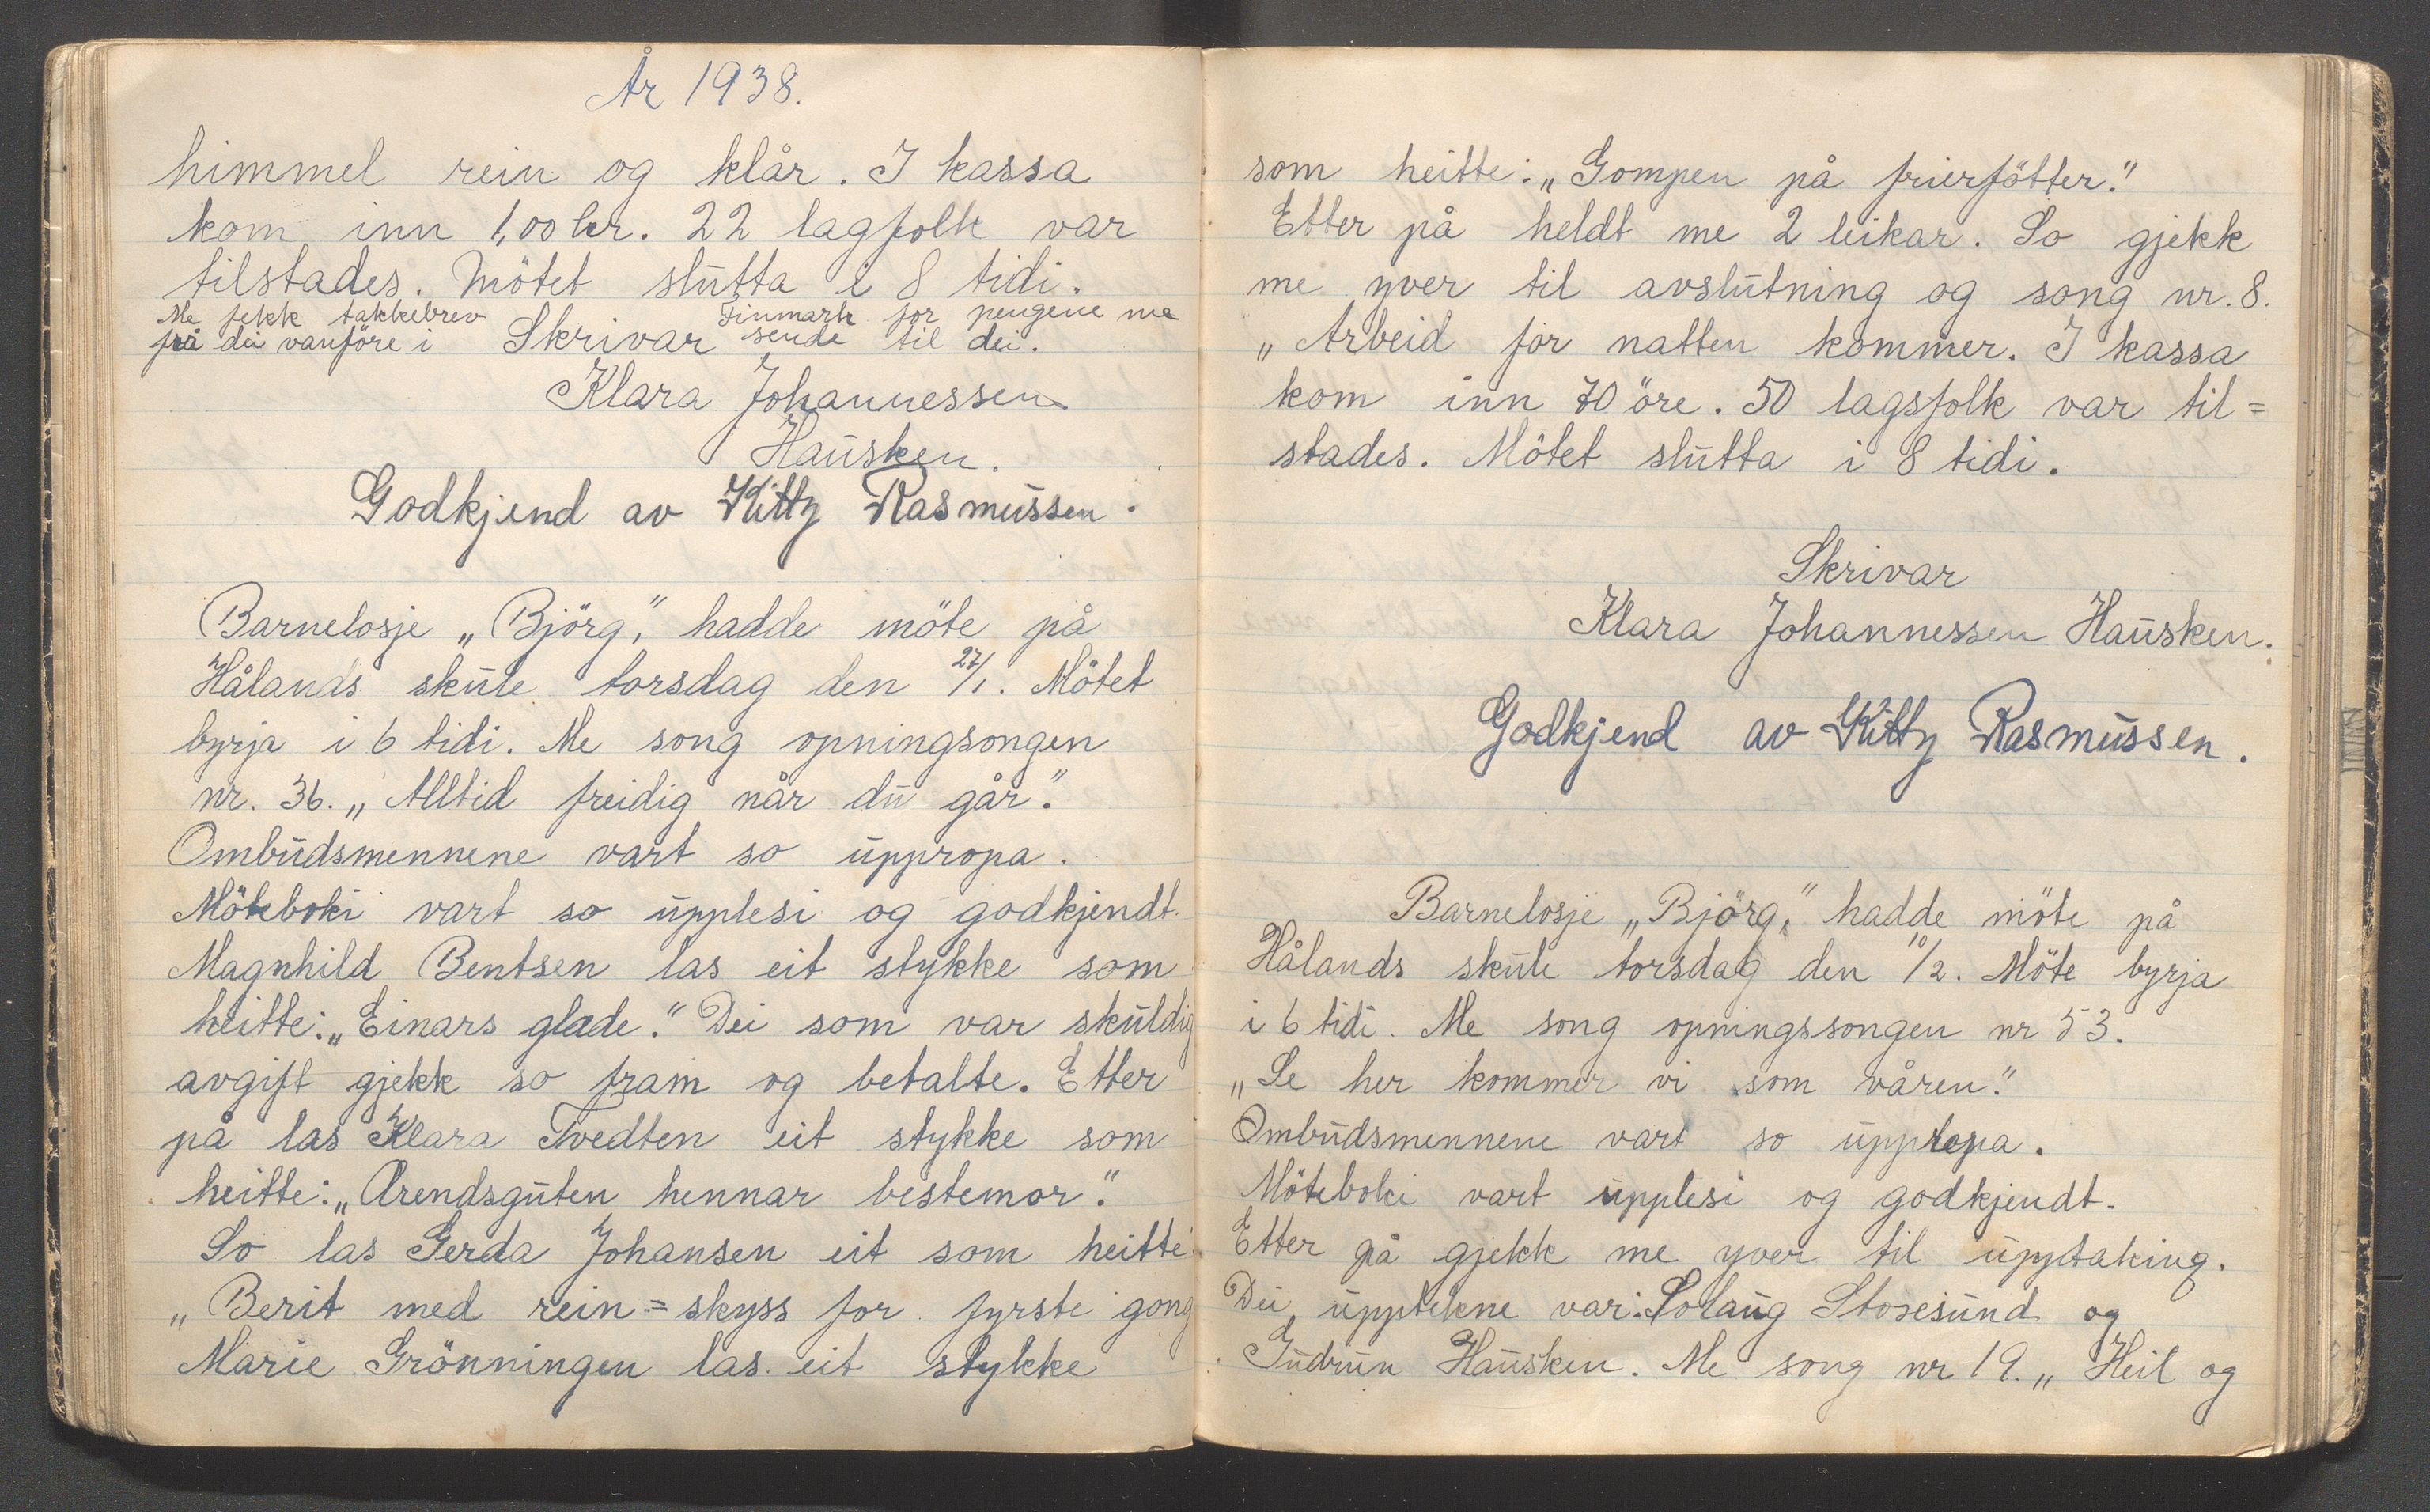 År 1938.
himmel rein og klår. I kassa
kom inn 1,00 kr. 22 lagfolk var
tilstades. Mötet slutta i 8 tidi.
Me fekk takkebrev Finmark for pengene me
frå dei vanföre i Skrivar sende til dei.
Klara Johannessen
Hausken.
Godkjend av Kitty Rasmussen.
Barnelosje „Björg," hadde möte på
Hålands skule torsdag den 27/1. Mötet
byrja i 6 tidi. Me song opningsongen
nr. 36. „Alltid freidig når du går."
Ombudsmennene vart so uppropa.
Möteboki vart so upplesi og godkjendt.
Magnhild Bentsen las eit stykke som
heitte: „Einars glade." Dei som var skuldig
avgift gjekk so fram og betalte. Etter
på las Klara Tvedten eit stykke som
heitte: „Arendsguten hennar bestemor."
So las Gerda Johansen eit som heitte
„Berit med rein=skyss for fyrste gong
Marie Grönningen las eit stykke
som heitte: „Gompen på frierfötter."
Etter på heldt me 2 leikar. So gjekk
me yver til avslutning og song nr. 8.
„Arbeid for natten kommer. I kassa
kom inn 70 öre. 50 lagsfolk var til=
stades. Mötet slutta i 8 tidi.
Skrivar
Klara Johannessen Hausken.
Godkjend av Kitty Rasmussen.
Barnelosje „Björg," hadde möte på
Hålands skule torsdag den 10/2. Möte byrja
i 6 tidi. Me song opningssongen nr 53.
„Se her kommer vi som våren."
Ombudsmennene vart so uppropa.
Möteboki vart upplesi og godkjendt.
Etter på gjekk me yver til upptaking.
Dei upptekne var: Solaug Stosesund og
Gudrun Hausken. Me song nr 19. „Heil og